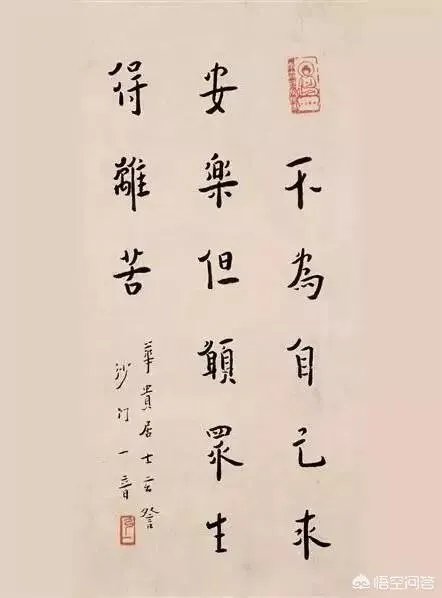 不為自己求
安樂但願眾生
得離苦
華貴居士玄詧
沙門一音
悟空问答